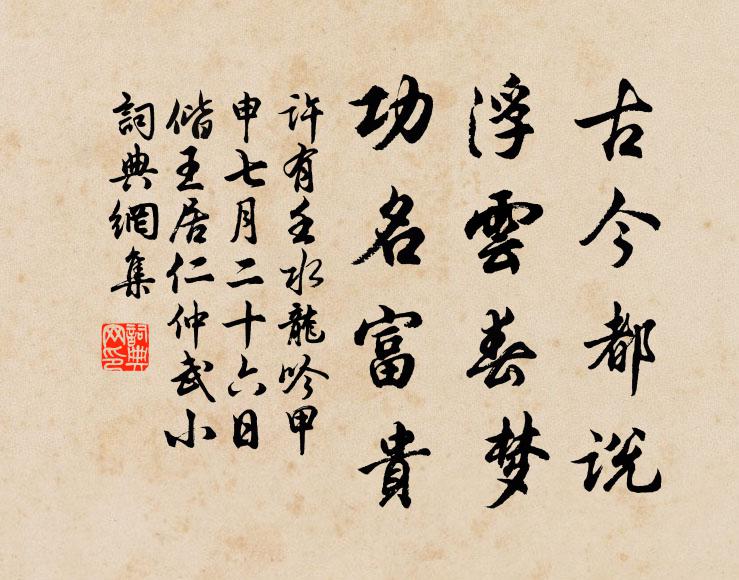 古今都说
浮雲春梦
功名富貴
許有壬水龍吟甲
申七月二十六日
偕王居仁仲武小
詞典網集
詞典网印